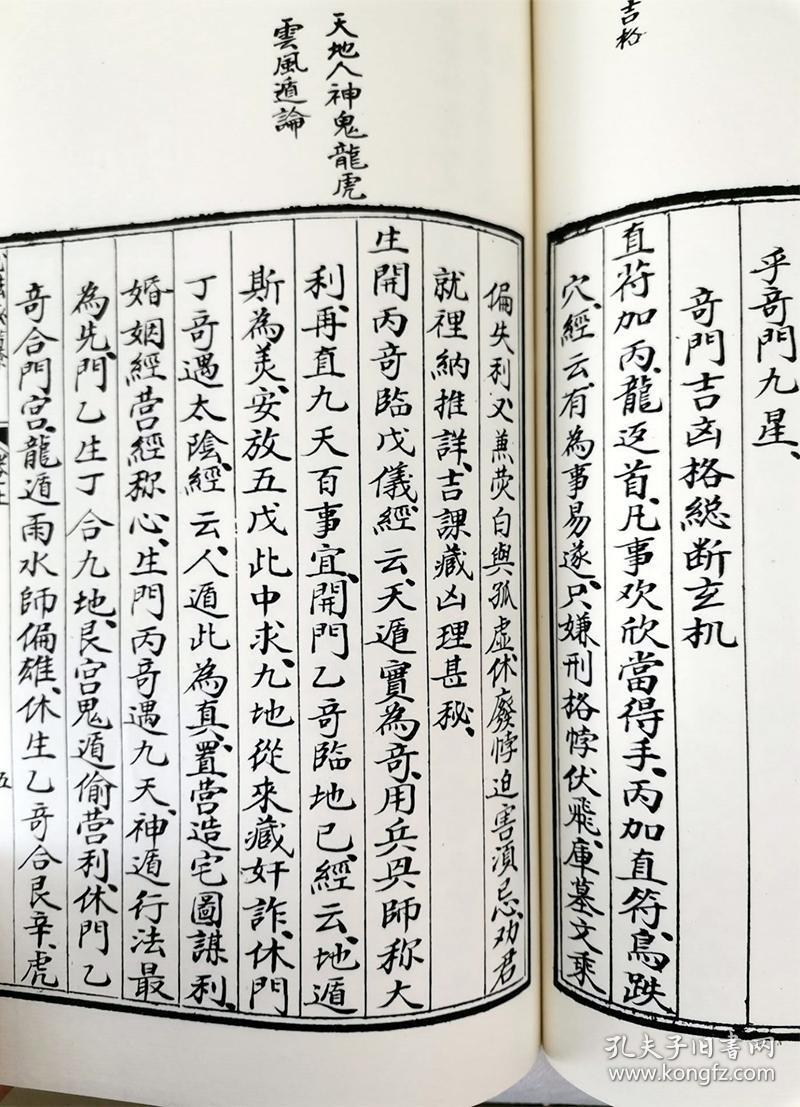 吉格
乎奇門九星、
奇門吉凶格総断玄机
直符加丙、龍返首、凡事欢欣當得手、丙加直符、鳥跌
穴、經云、有為事易遂、只嫌刑格悖伏飛、庫墓交乘
偏失利、又兼熒白與孤虛、休廢悖迫害須忌、劝君
就裡納推詳、吉課藏凶理甚秘、
生開丙竒臨戊儀、經云、天遁實為竒、用兵與師称大
利、再直九天百事宜、開門乙竒臨地已、經云、地遁
斯為美、安放五戊此中求、九地從來藏奸詐、休門
丁竒遇太陰、經云、人遁此為真、置营造宅圖謀利、
婚姻經营經称心、生門丙竒遇九天、神遁行法最
為先、門乙生丁合九地、艮宫鬼遁偷营利、休門乙
竒合門宫、龍遁雨水師偏雄、休生乙竒合艮辛、虎
天地人神鬼龍虎
雲風遁論
五
孔夫子旧书网
www.kongfz.com